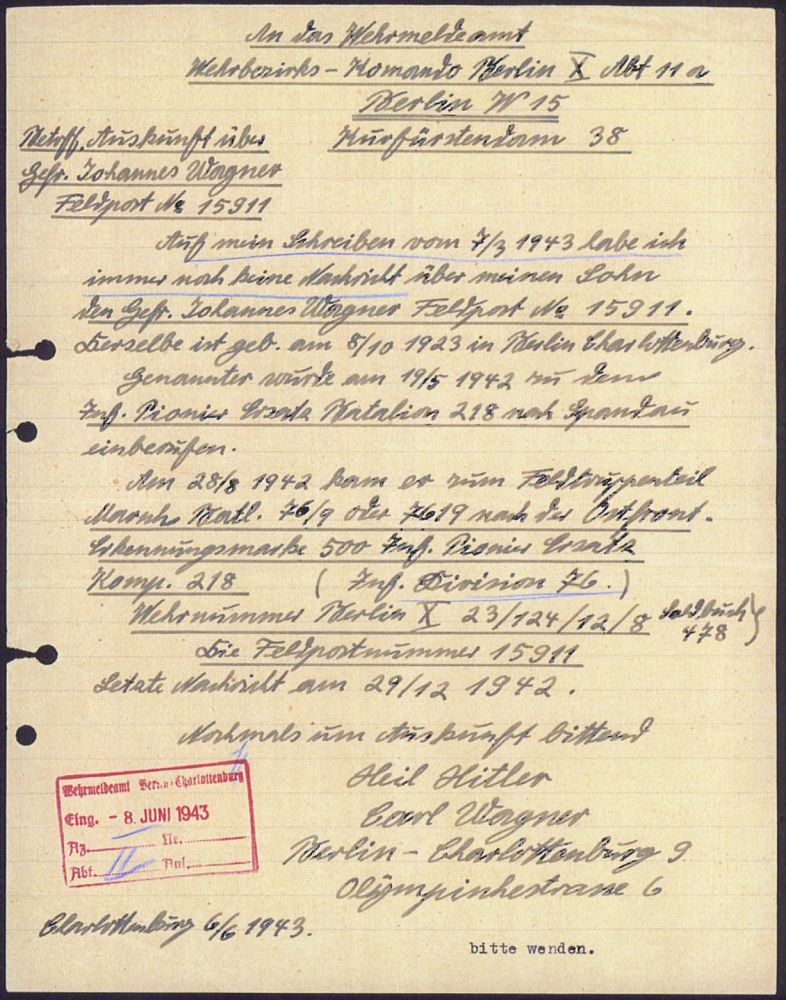 An das Wehrmeldeamt
Wehrbezirks - Komando Berlin X Abt 11 a
Berlin W 15
Kurfürstendam 38
Betrff. Auskunft über
Gefr. Johannes Wagner
Feldpost № 15911
Auf mein Schreiben vom 7/3 1943 habe ich
immer noch keine Nachricht über meinen Sohn
den Gefr. Johannes Wagner Feldpost № 15911.
Derselbe ist geb. am 8/10 1923 in Berlin Charlottenburg.
Genannter wurde am 19/5 1942 zu dem
Inf. Pionier Ersatz Batalion 218 nach Spandau
einberufen.
Am 28/8 1942 kam er zum Feldtruppenteil
Marsch Batl. 76/9 oder 7619 nach der Ostfront.
Erkennungsmarke 500 Inf. Pionier Ersatz
Komp. 218 ( Inf. Division 76.)
Wehrnummer Berlin X 23/124/12/8 Soldbuch
478
Die Feldpostnummer 15911
Letzte Nachricht am 29/12 1942.
Nochmals um Auskunft bittend
Heil Hitler
Carl Wagner
Berlin - Charlottenburg 9
Olympischestrasse 6
Wehrmeldeamt Berlin-Charlottenburg
Eing. - 8. JUNI 1943
Az. Nr.
Abt. 11
Charlottenburg 6/6 1943.
bitte wenden.